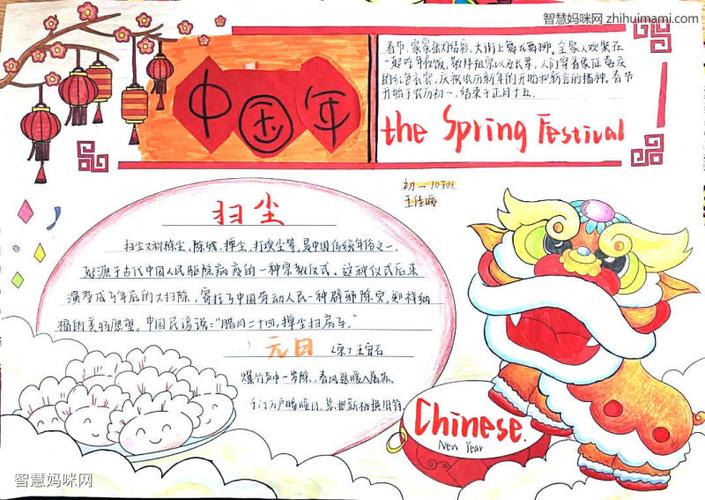 智慧妈咪网 zhihuimami.com
中国年
春节，家家张灯结彩，大街上舞龙舞狮，全家人欢聚在
一起吃年夜饭，敬拜祖宗以及长辈，人们穿着象征喜庆
的红色衣裳，庆祝农历新年的开始和新的播种。春节
开始于农历初一，结束于正月十五。
the Spring Festival
初一
扫尘
扫尘又称除尘，除残，掸尘，打埃尘等，是中国传统年俗之一。
起源于古代中国人民驱除病疫的一种宗教仪式，这种仪式后来
演变成了年底的大扫除，寄托了中国劳动人民一种辟邪除灾，迎祥纳
福的美好愿望。中国民谚说："腊月二十四，掸尘扫房子。"
元日 (宋) 王安石
爆竹声中一岁除，春风送暖入屠苏。
千门万户曈曈日，总把新桃换旧符
Chinese
New Year
智慧妈咪网